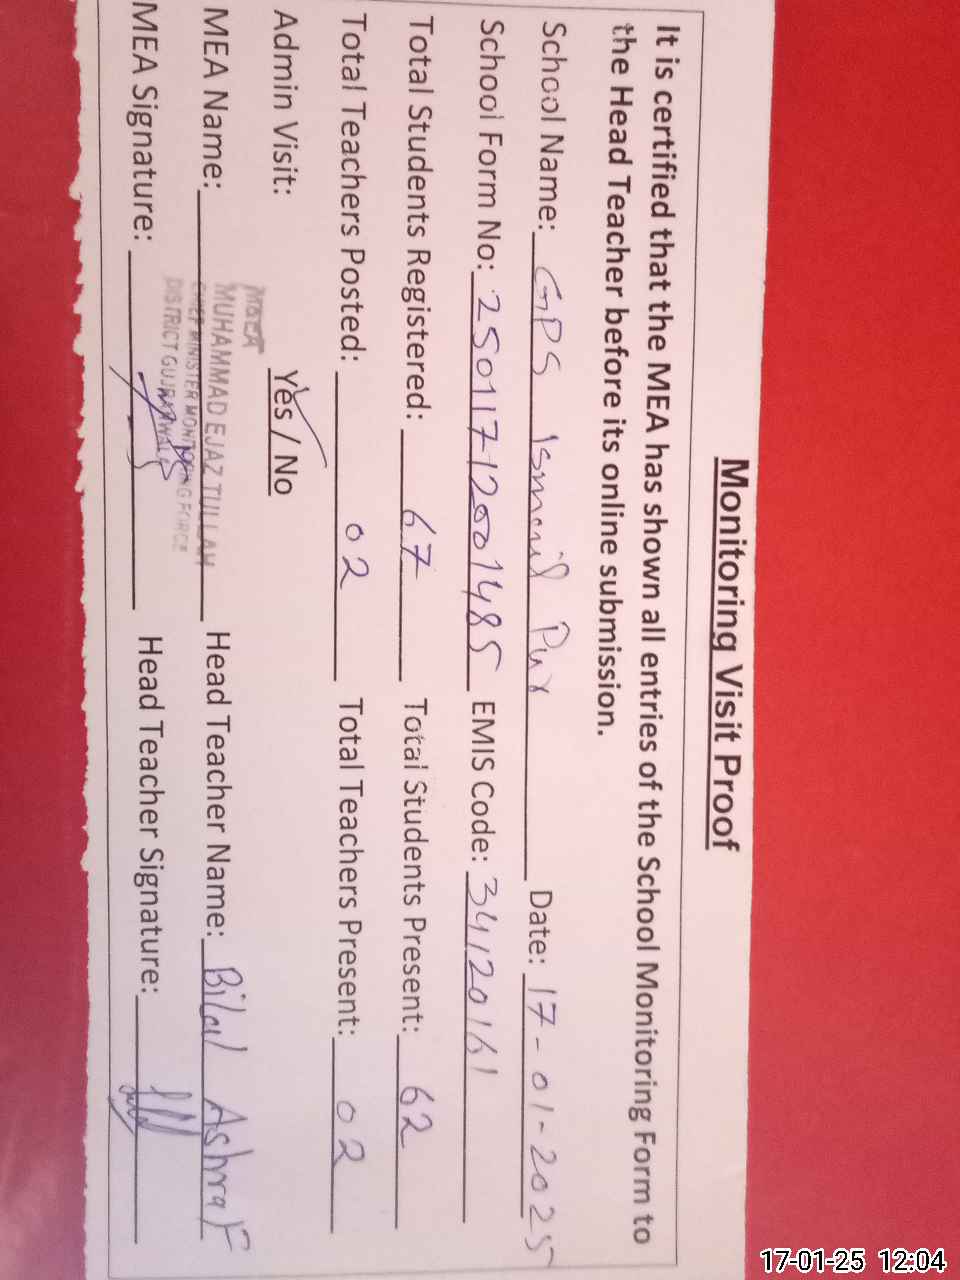 Monitoring Visit Proof
It is certified that the MEA has shown all entries of the School Monitoring Form to
the Head Teacher before its online submission.
School Name: GPS Ismail Pur Date: 17-01-2025
School Form No: 25011712001485 EMIS Code: 34120161
Total Students Registered: 67 Total Students Present: 62
Total Teachers Posted: 02 Total Teachers Present: 02
Admin Visit: Yes / No
MEA
MEA Name: MUHAMMAD EJAZ TULLAH Head Teacher Name: Bilal Ashraf
CHIEF MINISTER MONITORING FORCE
DISTRICT GUJRANWALA
MEA Signature: Head Teacher Signature:
17-01-25 12:04